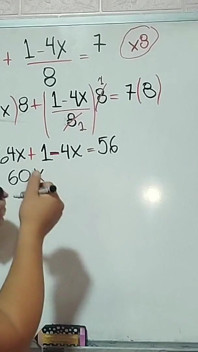 + \frac{1-4x}{8} = 7 (x8)
x)8 + (\frac{1-4x}{8})8 = 7(8)
64x + 1 - 4x = 56
60x